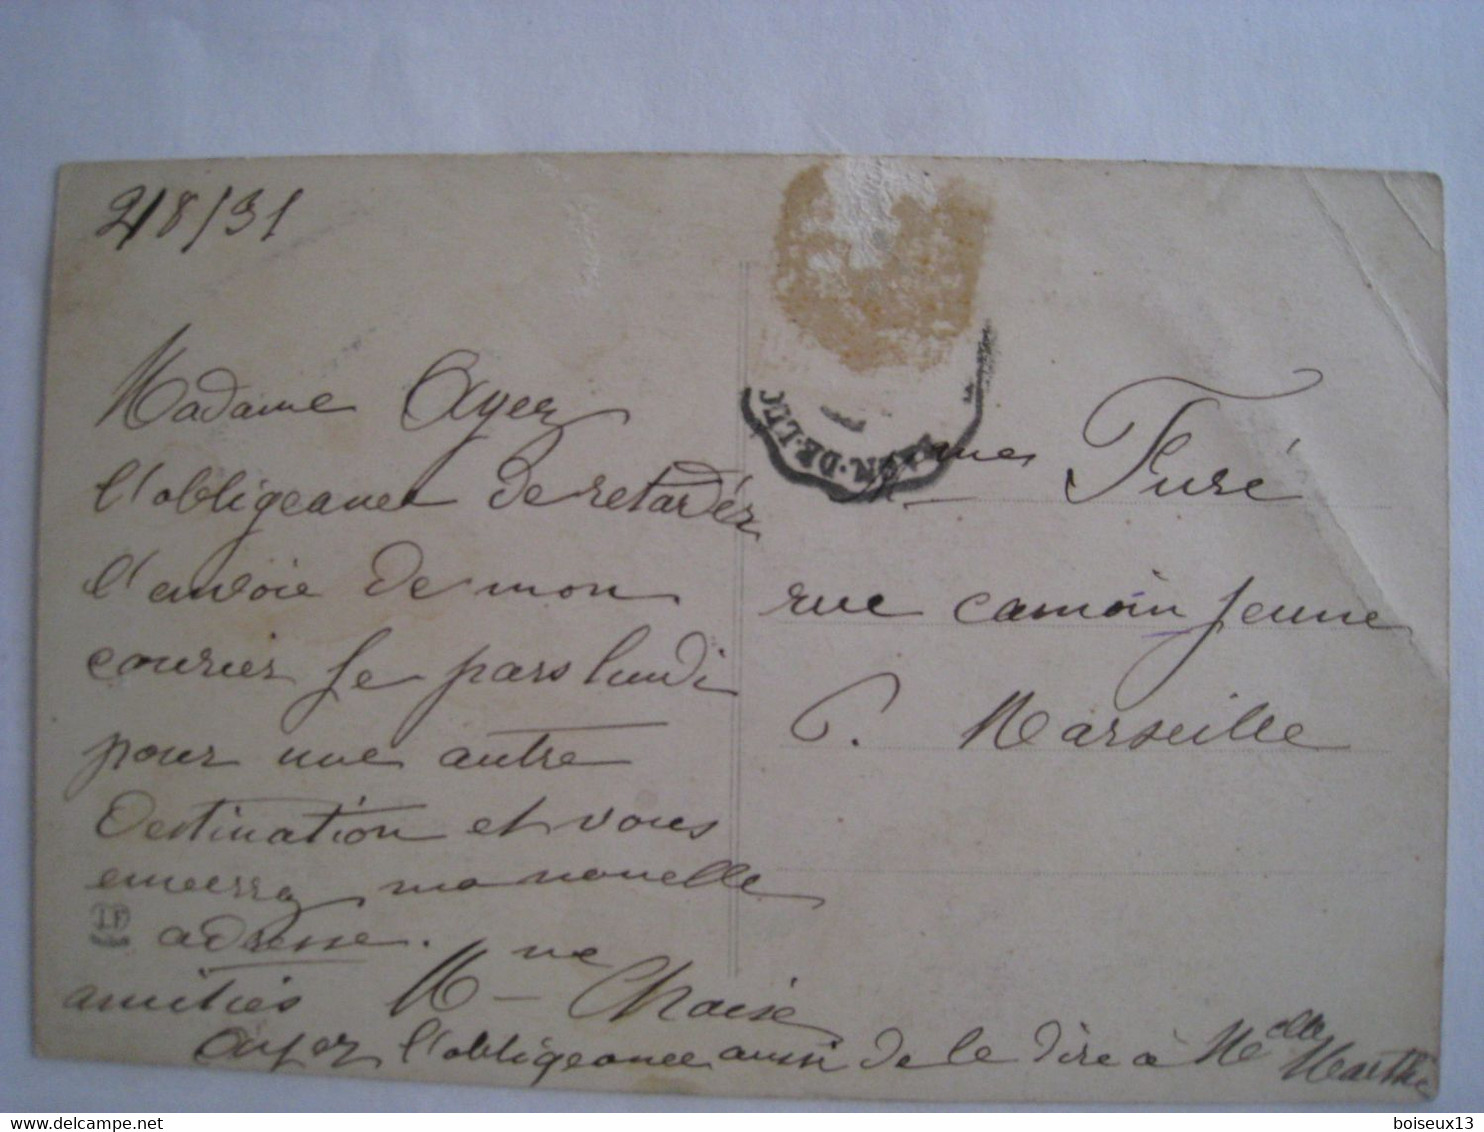 2/8/31
Madame Ayez
l'obligeance de retardéz
l'envoie de mon
courier je pars lundi
pour une autre
destination et vous
enverra ma nouvelle
adresse.
amitiés Mme Chaise
Ayez l'obligeance aussi de le dire à Melle Marthe
Mmes Furé
rue camoin Jeune
P. Marseille
J.F
boiseux13